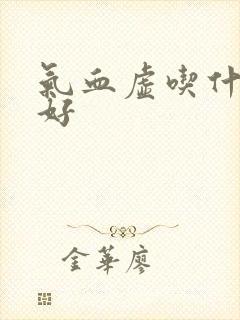 氣血虛喫什
好
金華廖